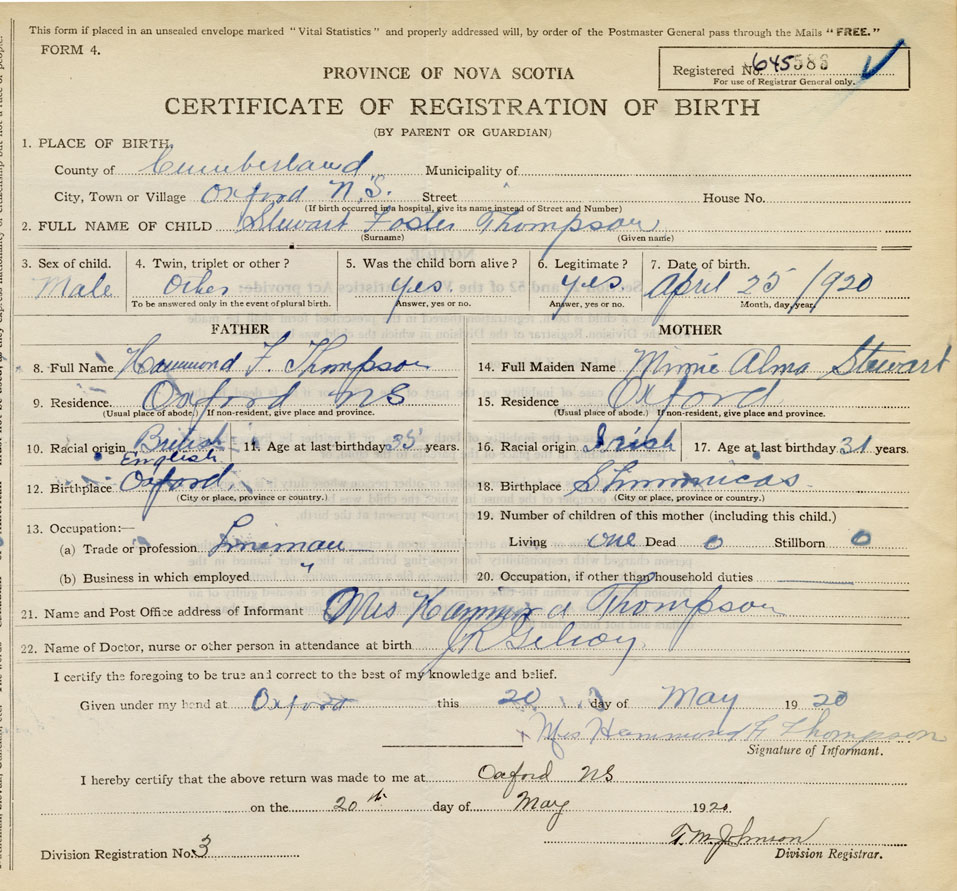 This form if placed in an unsealed envelope marked "Vital Statistics" and properly addressed will, by order of the Postmaster General pass through the Mails "FREE."
FORM 4.
Registered No. 645586
For use of Registrar General only.
PROVINCE OF NOVA SCOTIA
CERTIFICATE OF REGISTRATION OF BIRTH
(BY PARENT OR GUARDIAN)
1. PLACE OF BIRTH,
County of Cumberland Municipality of
City, Town or Village Oxford N.S. Street House No.
(If birth occurred in a hospital, give its name instead of Street and Number)
2. FULL NAME OF CHILD Stewart Foster Thompson
(Surname) (Given name)
3. Sex of child. 4. Twin, triplet or other? 5. Was the child born alive? 6. Legitimate? 7. Date of birth.
Male Other yes. yes. April 25/1920
To be answered only in the event of plural birth. Answer, yes or no. Answer, yes or no. Month, day, year.
FATHER MOTHER
8. Full Name Hammond F. Thompson 14. Full Maiden Name Minnie Alma Stewart
9. Residence. Oxford NS 15. Residence Oxford
(Usual place of abode.) If non-resident, give place and province. (Usual place of abode.) If non-resident, give place and province.
10. Racial origin British English 11. Age at last birthday 35 years. 16. Racial origin Irish 17. Age at last birthday 31 years.
12. Birthplace Oxford 18. Birthplace Shinimicas
(City or place, province or country.) (City or place, province or country.)
13. Occupation:— 19. Number of children of this mother (including this child.)
(a) Trade or profession Lineman Living one Dead 0 Stillborn 0
(b) Business in which employed " 20. Occupation, if other than household duties
21. Name and Post Office address of Informant Mrs Hammond Thompson
22. Name of Doctor, nurse or other person in attendance at birth J R Gilroy
I certify the foregoing to be true and correct to the best of my knowledge and belief.
Given under my hend at Oxford this 20 day of May 1920
Mrs Hammond F Thompson
Signature of Informant.
I hereby certify that the above return was made to me at Oxford NS
on the 20th day of May 1920.
T. M. Johnson
Division Registration No. 3 Division Registrar.